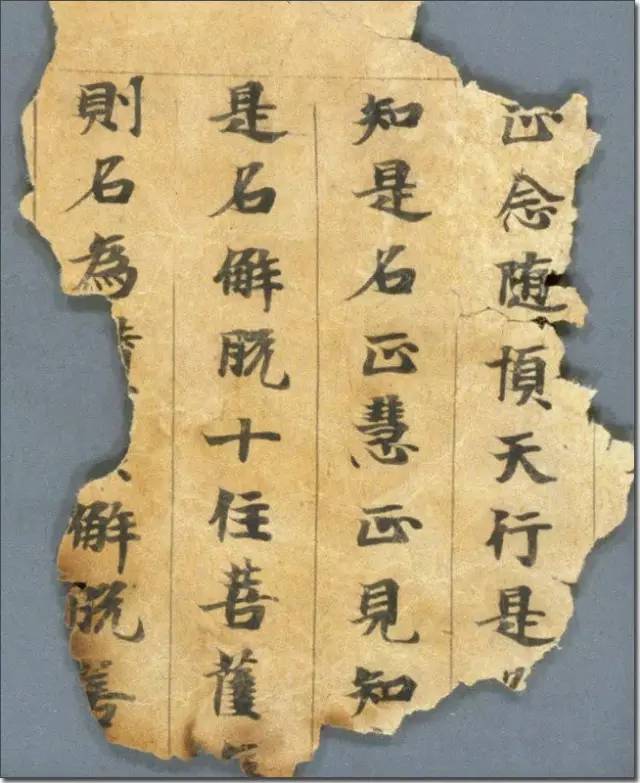 正念随順天行是
知是名正慧正見知
是名解脱十住菩薩
則名為解脱善